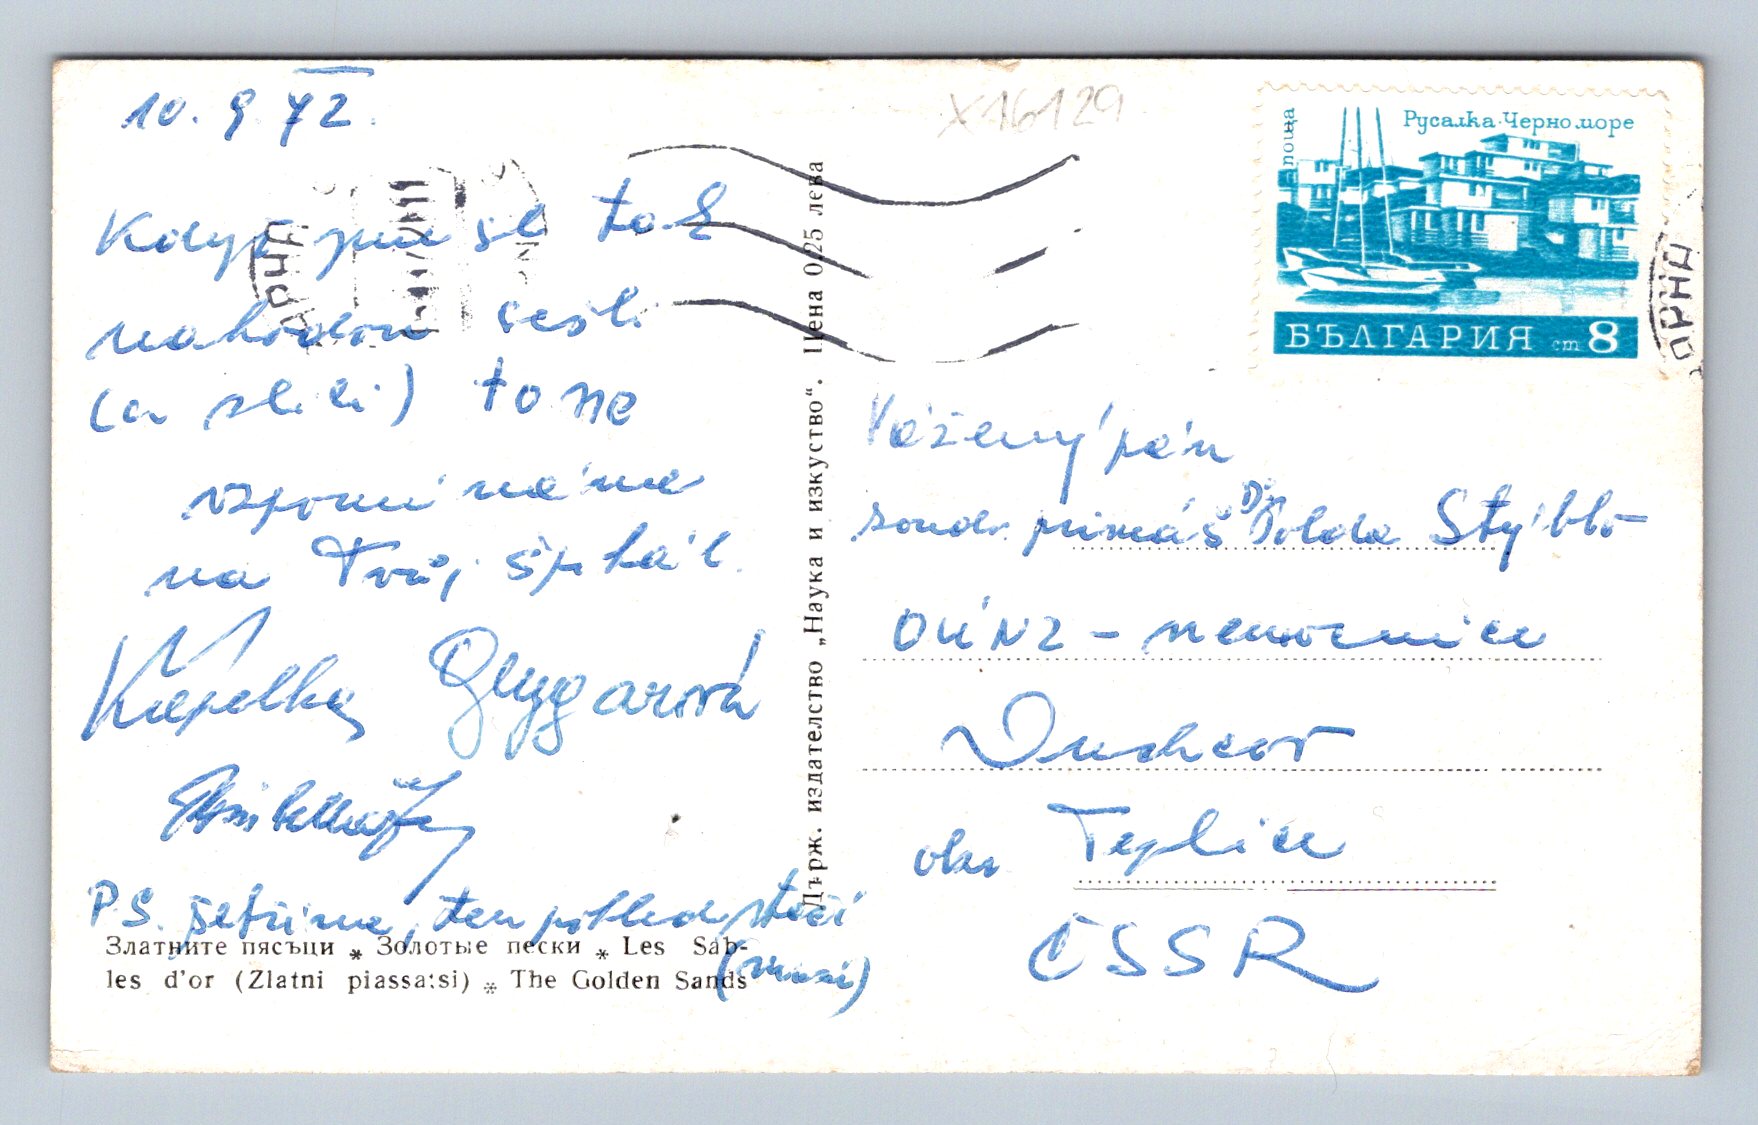 10. 9. 72.
X16129
Když jsme se tak
náhodou sešli
(a slili) to ne
vzpomínáme
na Tvůj špitál.
Kapelka Glygarová
P.S. šetříme, ten pohled stačí
(musí)
Златните пясъци * Золотые пески * Les Sab-
les d'or (Zlatni piassatsi) * The Golden Sands
Държ. издателство „Наука и изкуство“. Цена 0,25 лева
поща
Русалка·Черно море
БЪЛГАРИЯ ст 8
ВАРНА
Vážený pán
soudr. primáš Dr Polda Stýblo
OÚNZ - nemocnice
Duchcov
okr Teplice
ČSSR